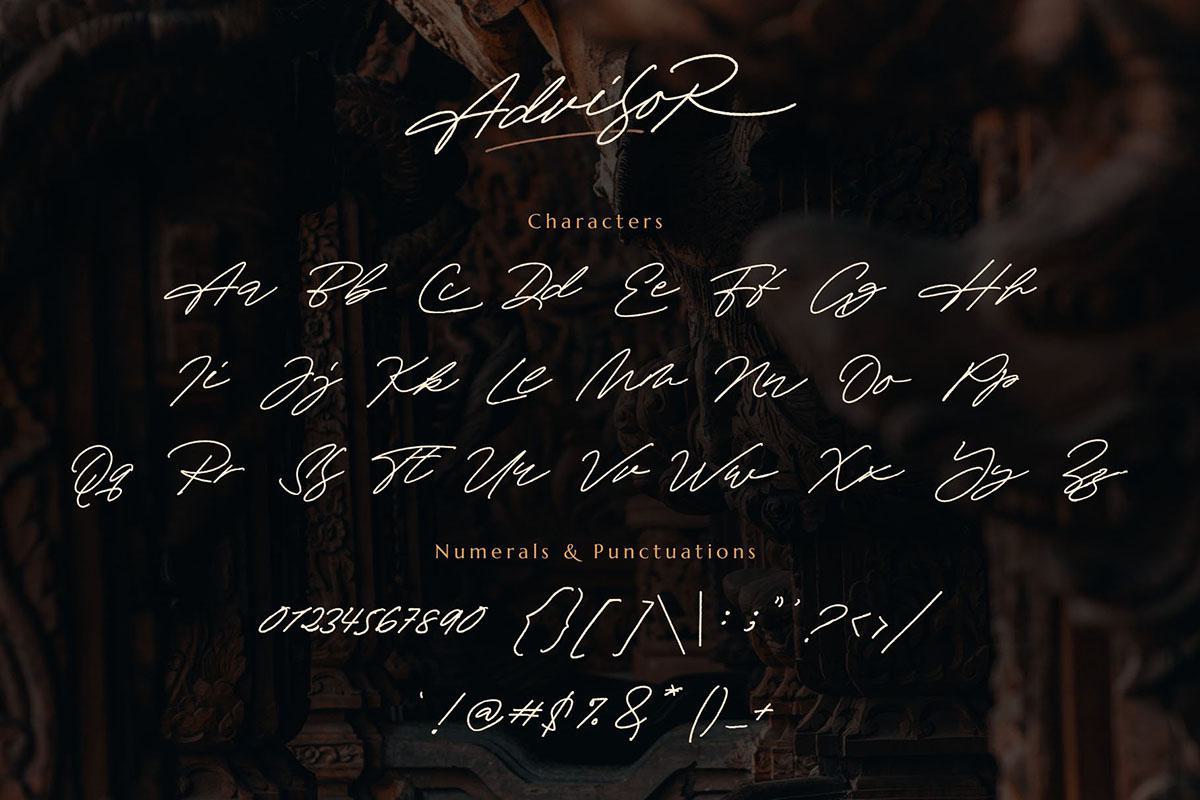 AdvisoR
Characters
Aa Bb Cc Dd Ee Ff Gg Hh
Ii Jj Kk Ll Mm Nn Oo Pp
Qq Rr Ss Tt Uu Vv Ww Xx Yy Zz
Numerals & Punctuations
01234567890 {}[]\|:;"'?<>/
`!@#$%&*()_+